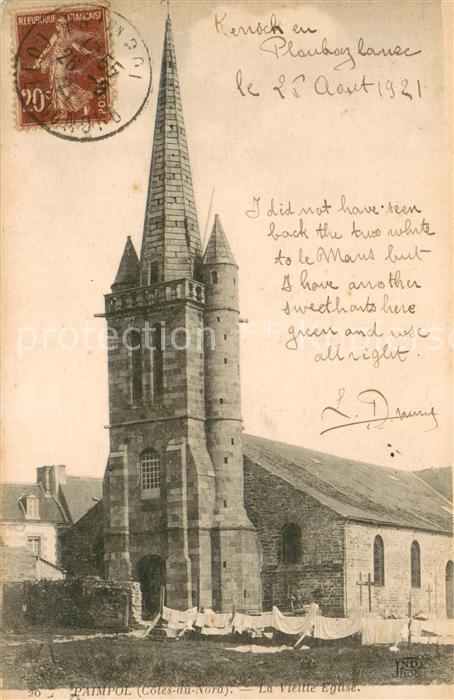 REPUBLIQUE FRANÇAISE
20c
POSTES
Kerrock en
Ploubazlanec
le 25 Aout 1921
I did not have seen
back the two white
to le Mans but
I have another
sweethearts here
green and rose
all right.
protection
L. Drouny
26 PAIMPOL (Côtes-du-Nord). — La Vieille Eglise.
ND